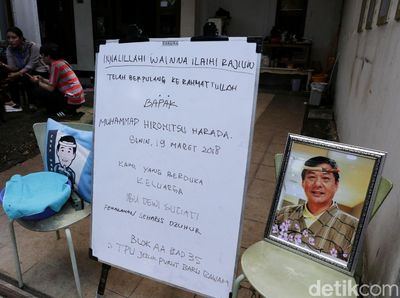 INNALILLAHI WAINNA ILAIHI RAJIUN
TELAH BERPULANG KE RAHMATTULLOH
BAPAK
MUHAMMAD HIROMITSU HARADA.
SENIN, 19 MARET 2018
KAMI YANG BERDUKA
KELUARGA
IBU DEWI SUCIATI
PEMAKAMAN SEHABIS DZUHUR
BLOK AA BAD 35
TPU JERUK PURUT BARU
detikcom